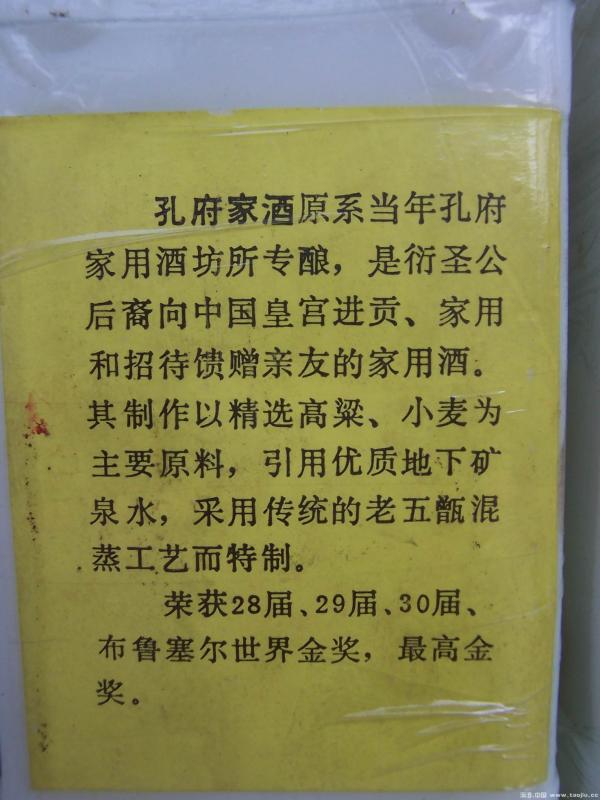 孔府家酒原系当年孔府
家用酒坊所专酿，是衍圣公
后裔向中国皇宫进贡、家用
和招待馈赠亲友的家用酒。
其制作以精选高粱、小麦为
主要原料，引用优质地下矿
泉水，采用传统的老五甑混
蒸工艺而特制。
荣获28届、29届、30届、
布鲁塞尔世界金奖，最高金
奖。
www.taojiu.cc